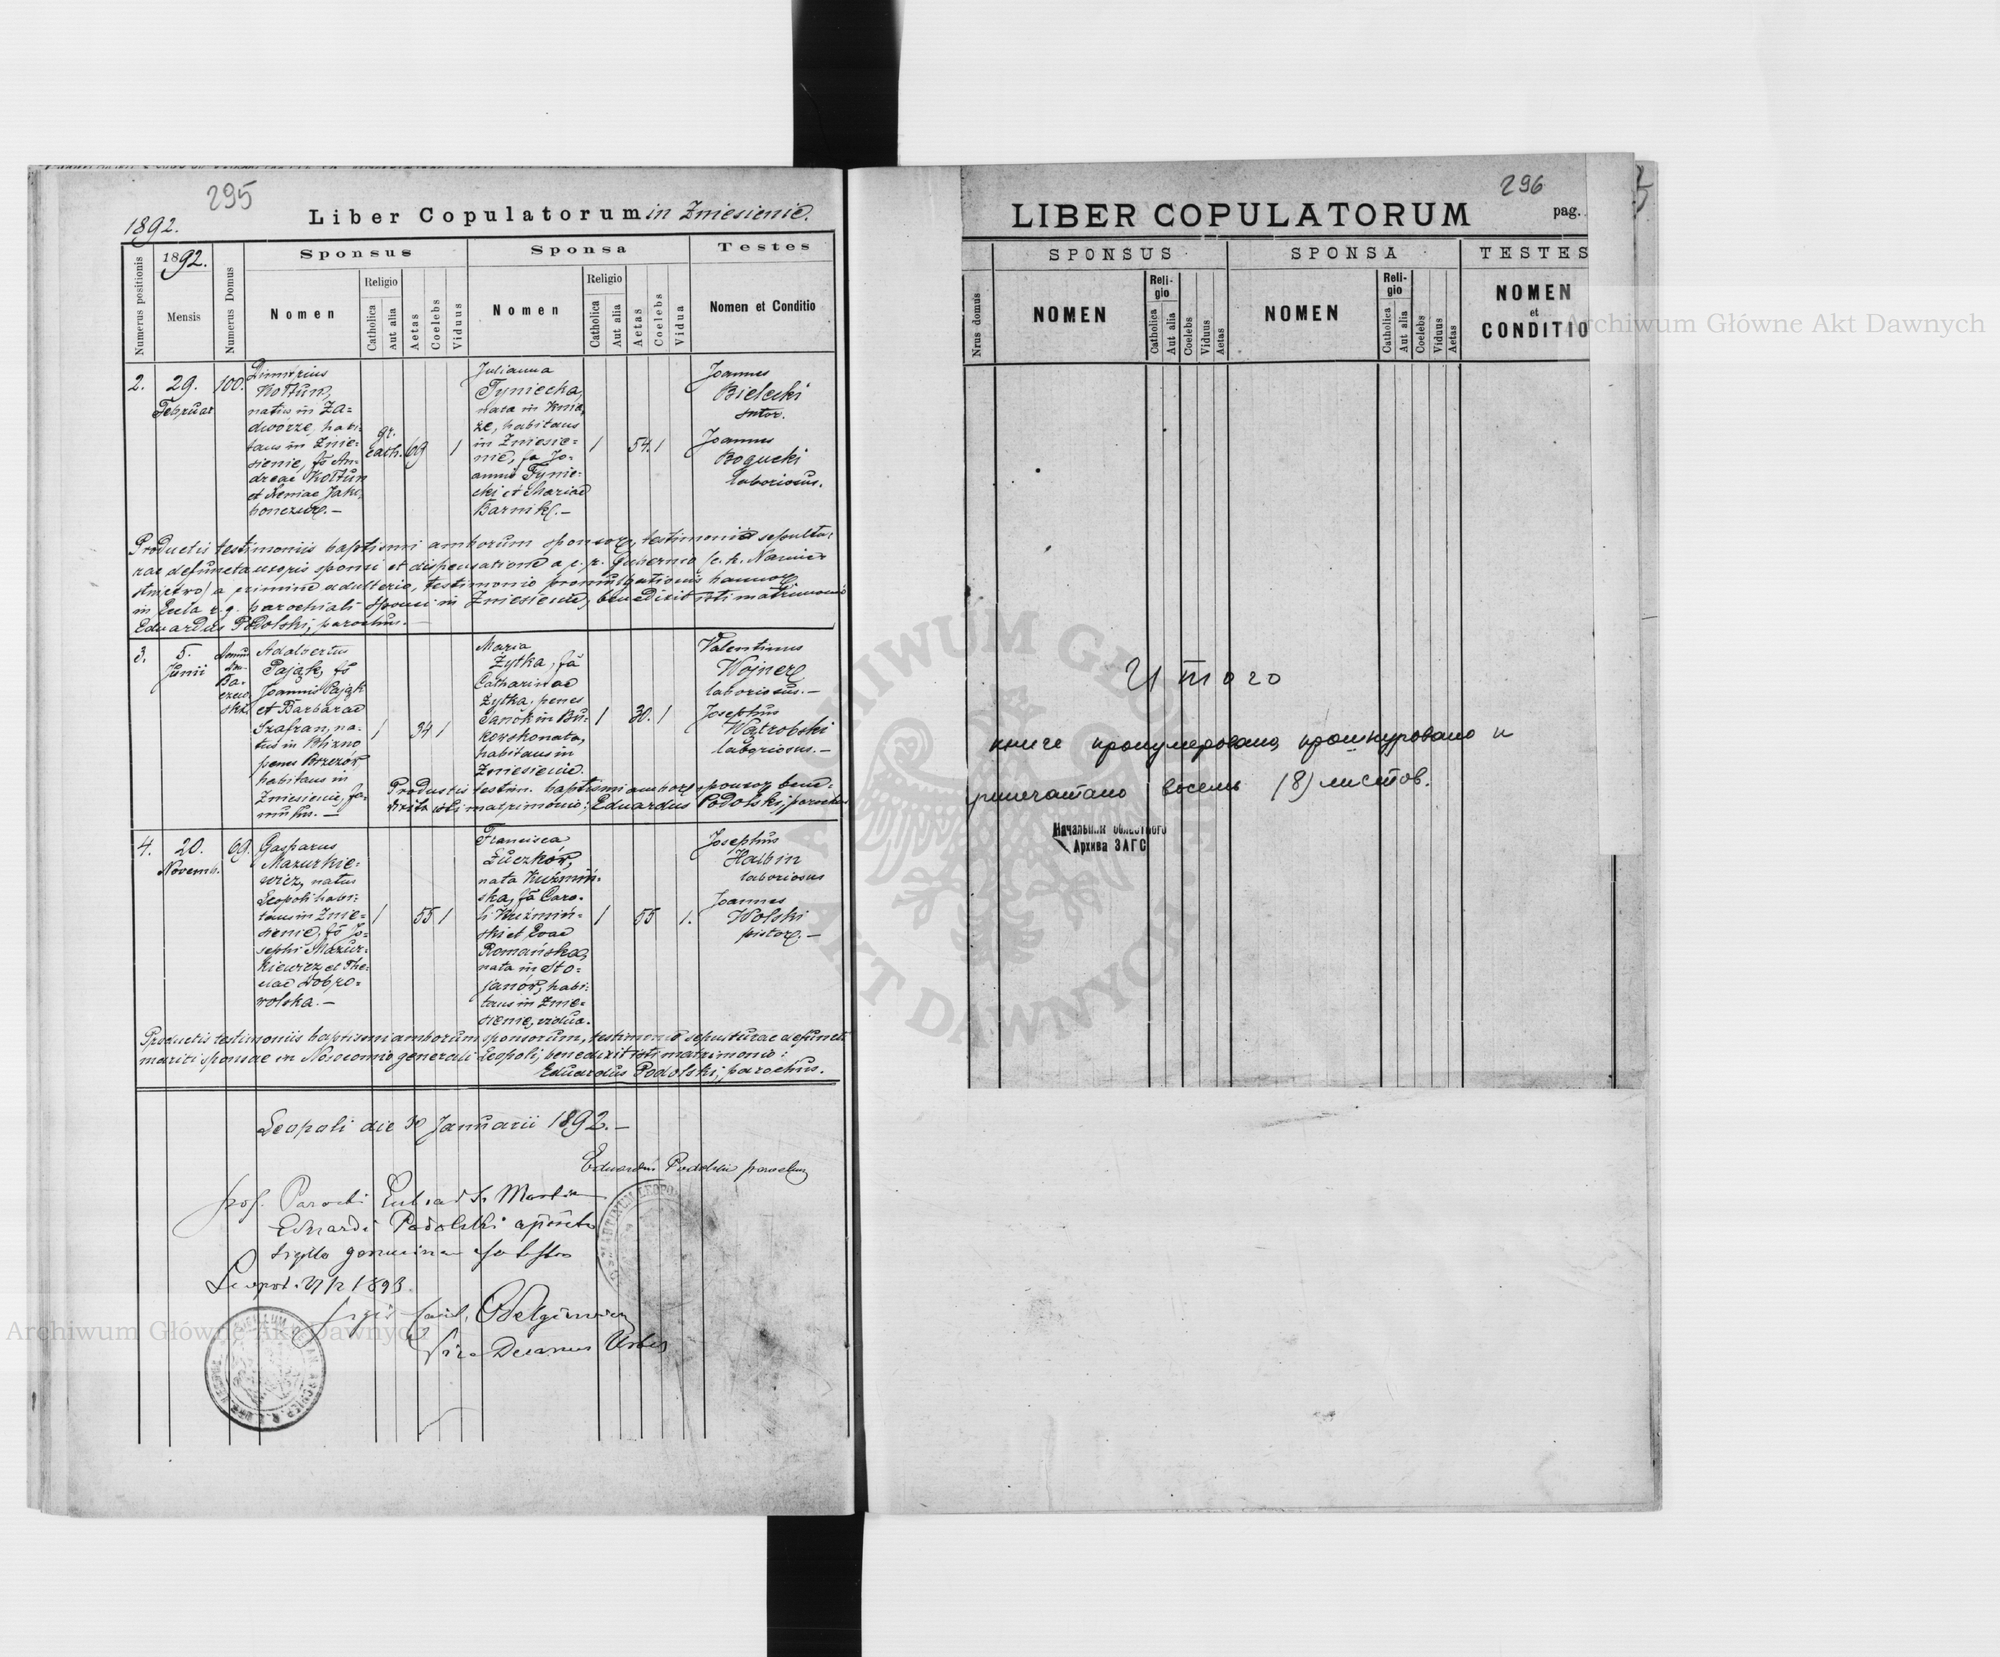 295
1892.
Liber Copulatorum in Zniesienie.
Numerus positionis
1892.
Mensis
Numerus Domus
Sponsus
Nomen
Religio
Catholica
Aut alia
Aetas
Coelebs
Viduus
Sponsa
Nomen
Religio
Catholica
Aut alia
Aetas
Coelebs
Vidua
Testes
Nomen et Conditio
2.
29.
Februar
100.
Dimitrius
Kołtun,
natus in Za=
dworze, habi=
tans in Znie=
sienie, fs An=
dreae Kołtun
et Xeniae Jaku
bonczuk. —
gr.
cath.
69
1
Julianna
Tyniecka,
nata in Knia
że, habitans
in Zniesie=
nie, fa Jo=
annis Tynie=
cki et Mariae
Barnik. —
1
54.
1
Joannes
Bielecki
sutor.
Joannes
Bogucki
laboriosus.
Productis testimoniis baptismi amborum sponsor, testimonio sepultu=
rae defunctae uxoris sponsi et dispensatione a c. r. Gubernio (c. k. Namie=
stnictwo) a crimine adulterii, testimonio promulgationis bannor
in Eccla r. g. parochiali sponsi in Zniesienie, benedixit isti matrimonio
Eduardus Podolski, parochus. —
3.
5.
Junii
Domus
Ba=
czew
ski.
Adalbertus
Pająk, fs
Joannis Pająk
et Barbarae
Szafran, na=
tus in Blizno
penes Brzezów
habitans in
Zniesienie, fa=
mulus. —
1
34
1
Maria
Zytka, fa
Catharinae
Zytka, penes
Sanok in Bu=
kowsko nata,
habitans in
Zniesienie.
1
30.
1
Valentinus
Wojner
laboriosus. —
Josephus
Wątrobski
laboriosus. —
Productis testim. baptismi ambor sponsor bene=
dixit isti matrimonio: Eduardus Podolski, parochus
4.
20.
Novemb.
69.
Gasparus
Mazurkie=
wicz, natus
Leopoli habi=
tans in Znie=
sienie, fs Jo=
sephi Mazur=
kiewicz et The=
clae Dobro=
wolska. —
1
55
1
Francisca
Łuczków,
nata Kuźmiń=
ska, fa Caro=
li Kuźmiń=
ski et Evae
Romańska,
nata in Sto=
janów, habi=
tans in Znie=
sienie, vidua.
1
55
1.
Josephus
Halbin
laboriosus
Joannes
Wolski
pistor. —
Productis testimoniis baptismi amborum sponsorum, testimonio sepulturae defuncti
mariti sponsae in Nosocomio generali Leopoli, benedixit isti matrimonio:
Eduardus Podolski, parochus.
Leopoli die 30 Januarii 1892. —
Eduardus Podolski parochus
Parochi ad S. Martin
Eduardi Podolski
sigillo
1893.
Vice Decanus Urbis
296
LIBER COPULATORUM
pag.
Nrus domus
SPONSUS
NOMEN
Reli-
gio
Catholica
Aut alia
Coelebs
Viduus
Aetas
SPONSA
NOMEN
Reli-
gio
Catholica
Aut alia
Coelebs
Viduus
Aetas
TESTES
NOMEN
et
CONDITIO
Archiwum Główne Akt Dawnych
Итого
книге пронумеровано, прошнуровано и
припечатано восемь (8) листов.
Начальник областного
Архива ЗАГС
ARCHIWUM GŁÓWNE
AKT DAWNYCH
Archiwum Główne Akt Dawnych